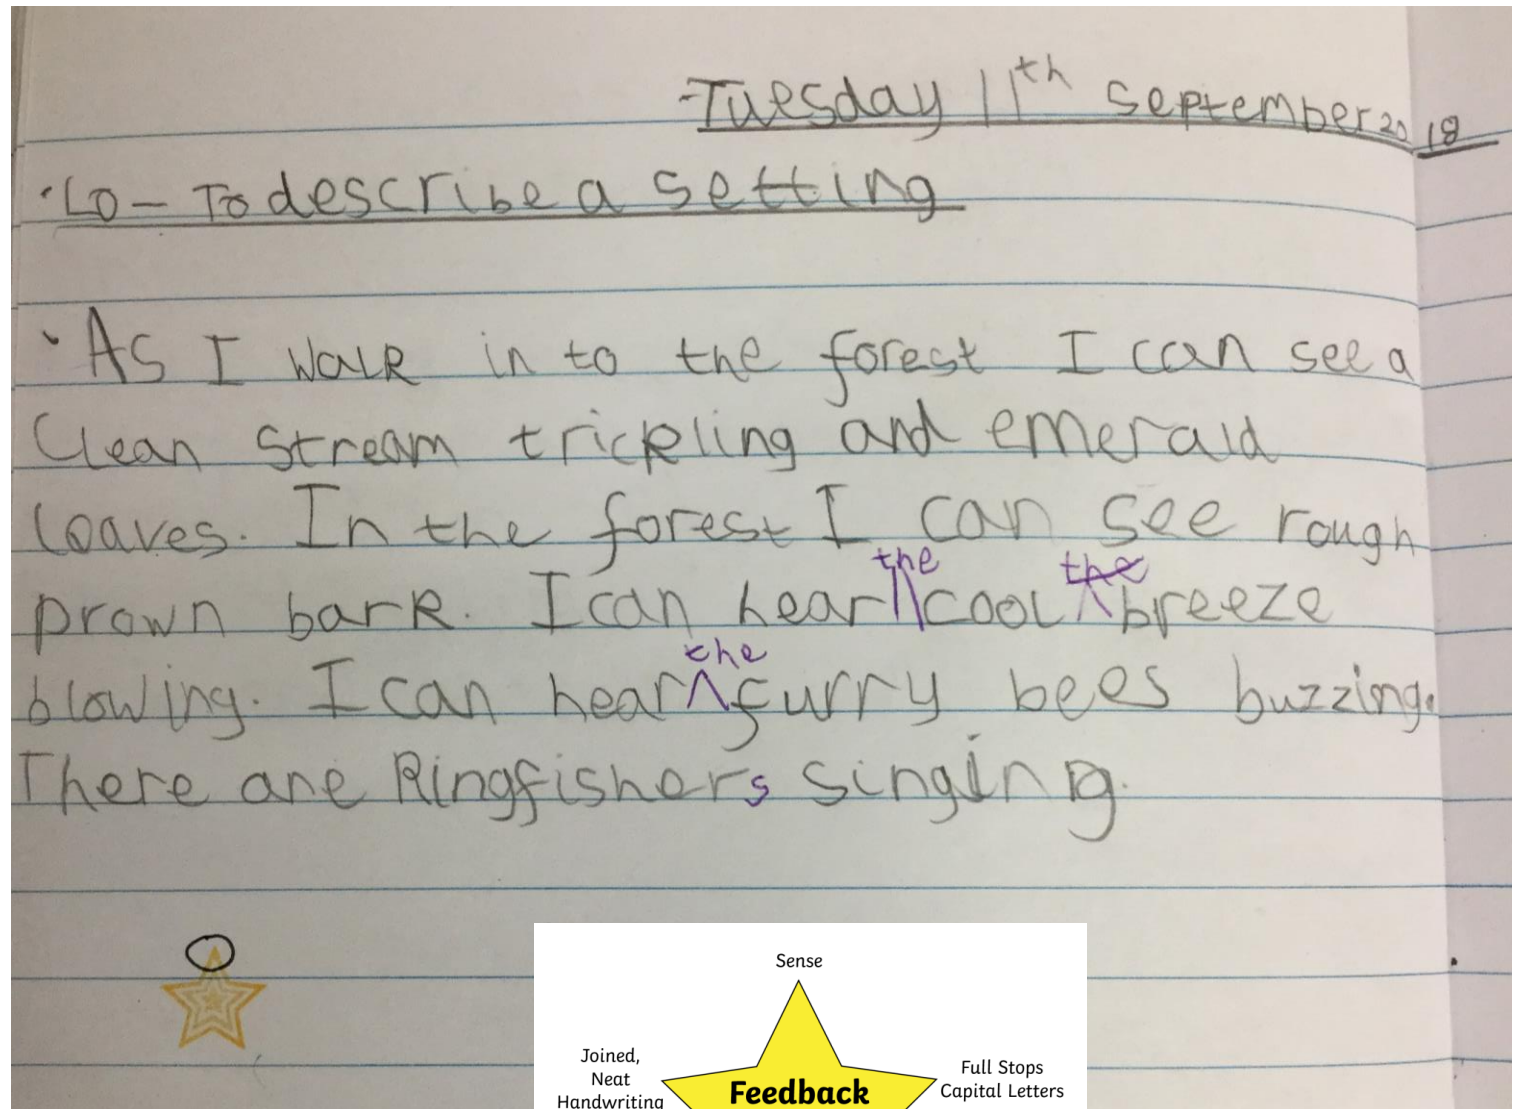 Tuesday 11th September 2018
LO - To describe a setting
As I walk in to the forest I can see a
Clean stream trickling and emerald
loaves. In the forest I can see rough
prown bark. I can hear the cool the breeze
blowing. I can hear the furry bees buzzing.
There are Kingfishers singing.
Sense
Joined,
Neat
Handwriting
Feedback
Full Stops
Capital Letters